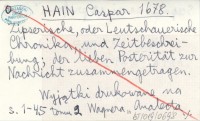 HAIN Caspar 1678.
Zipserische, oder Leutschauerische
Chronika, und Zeitbeschrei-
bung; der lieben Posterität zur
Nachricht zusammengetragen.
Wyjątki drukowane na
s. 1-45 tomu 2 Wagnera, Analecta